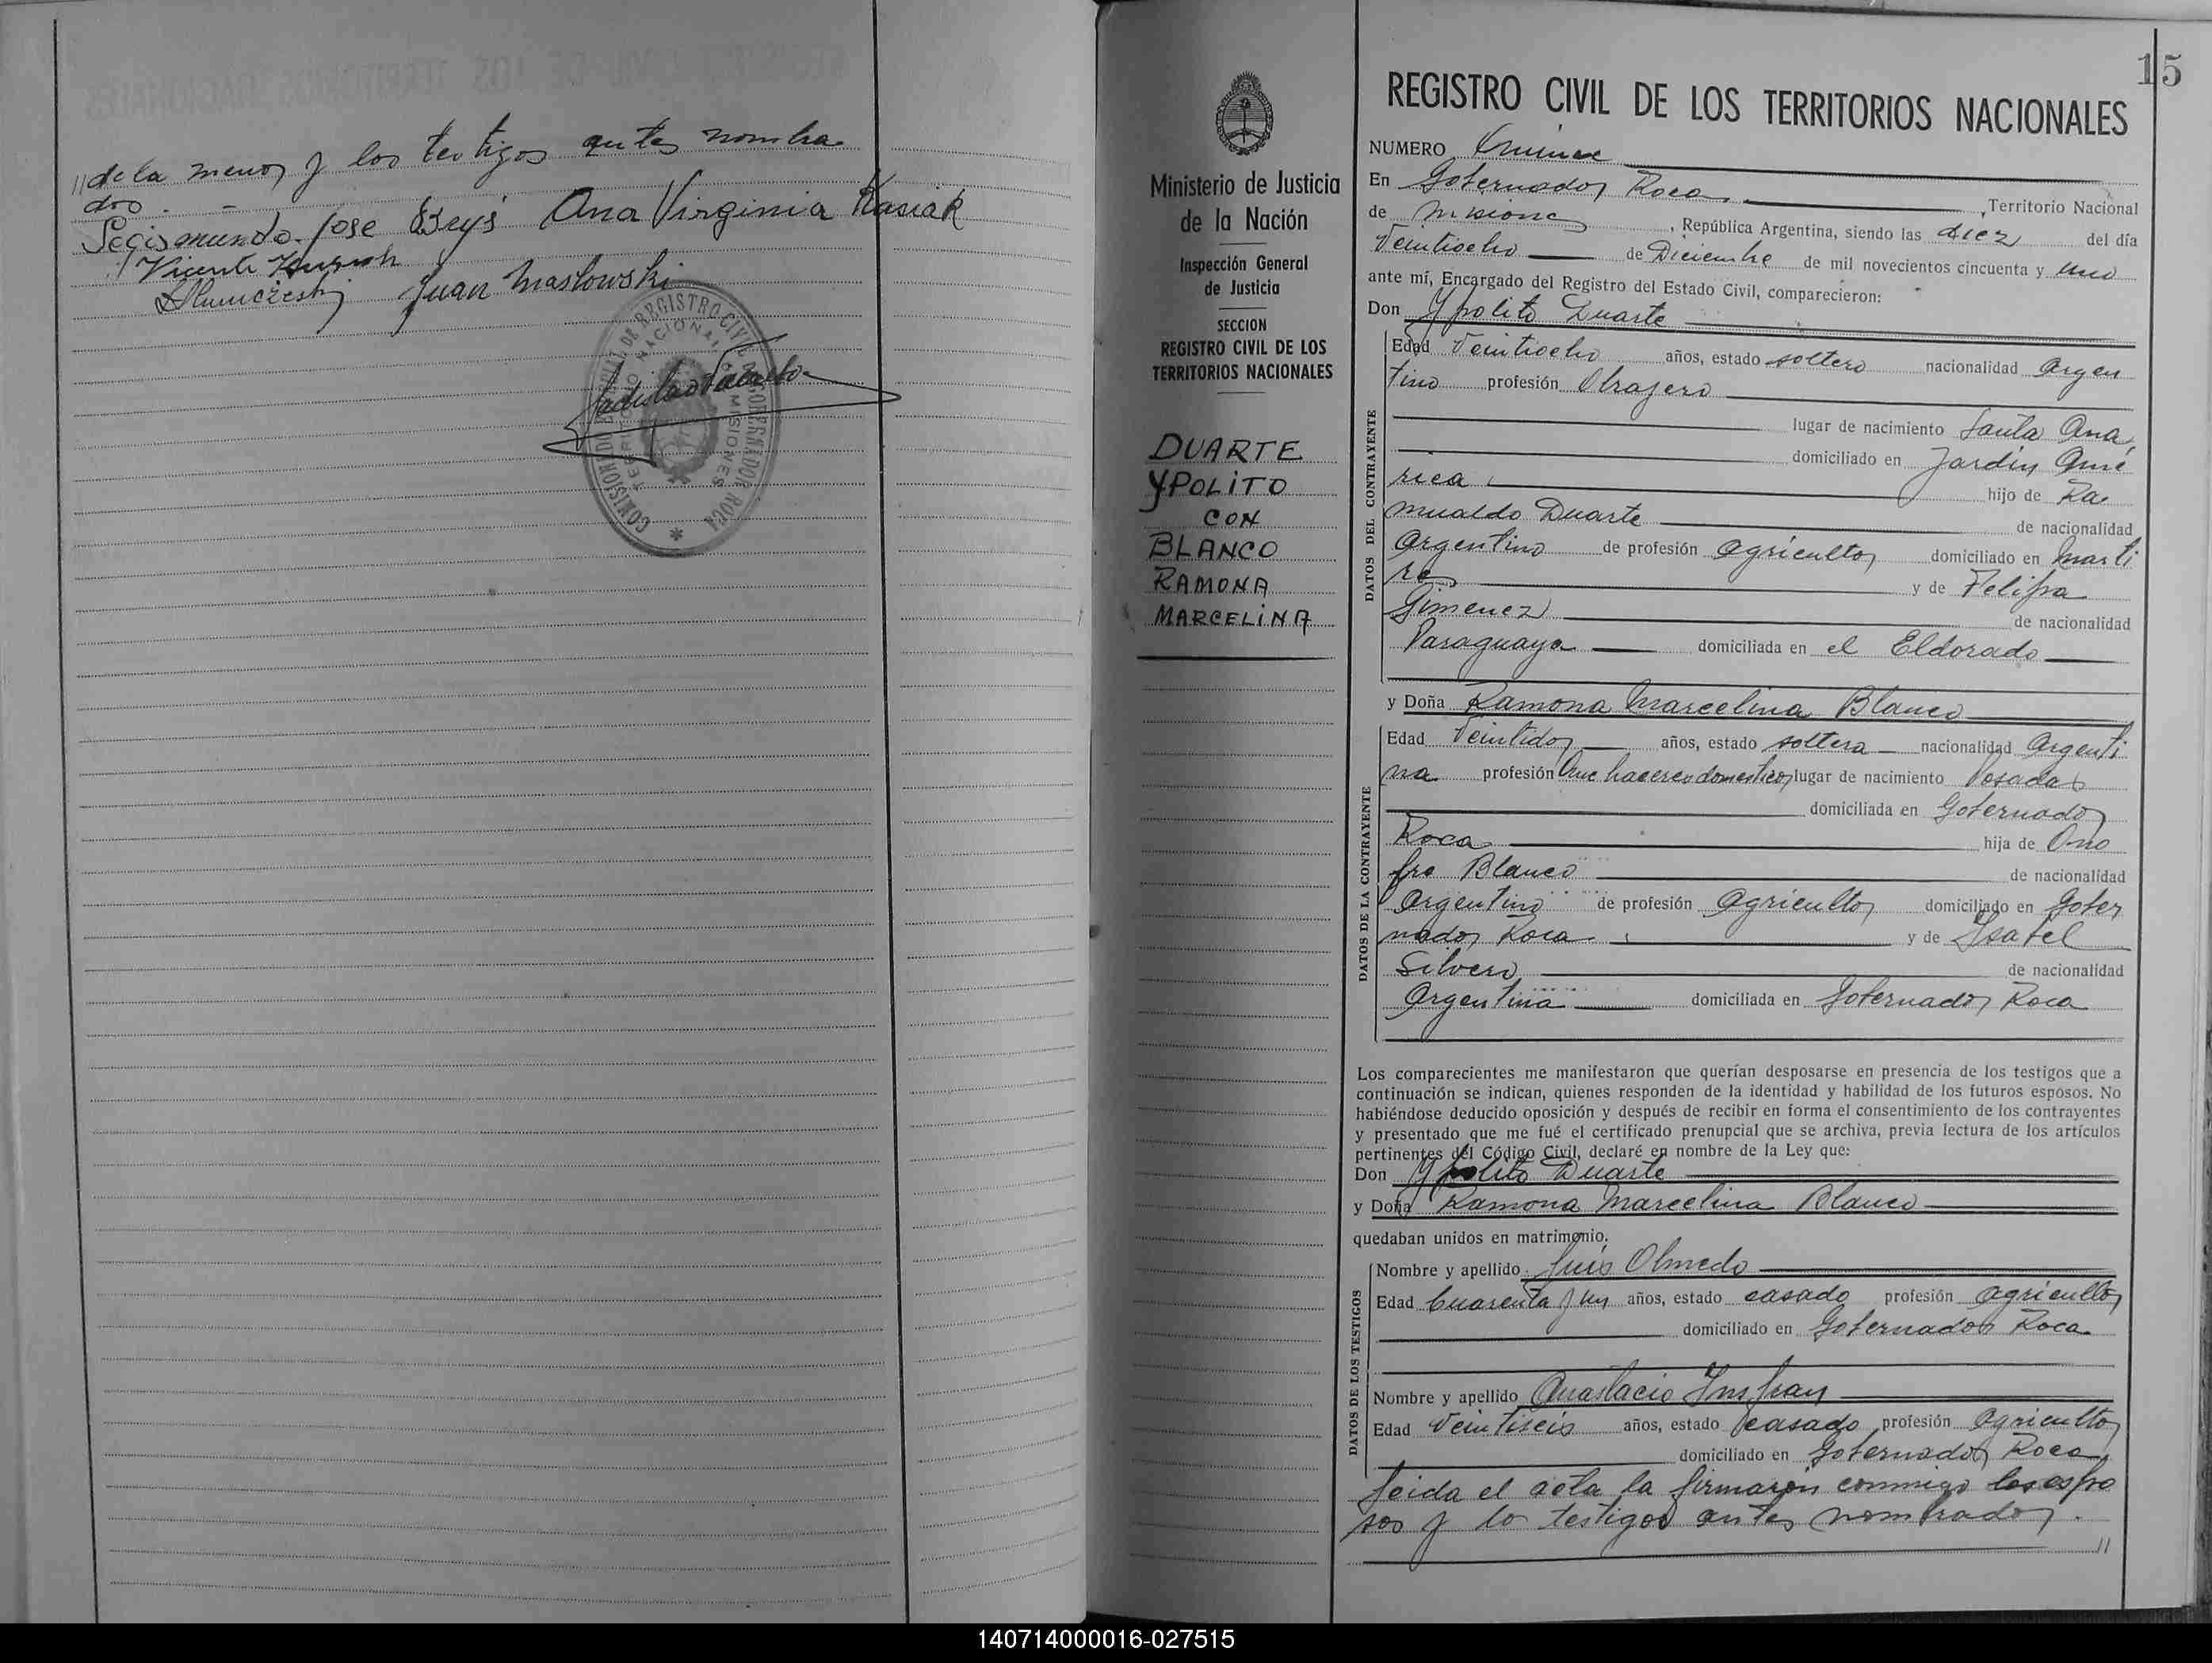 // de la menor y los testigos antes nombra
dos. -
Segismundo José Breys Ana Virginia Kasiak
Vicente
Juan Maslowski
COMISION DE FOMENTO DE REGISTRO CIVIL GOBERNADOR ROCA
TERRITORIO NACIONAL MISIONES
15
REGISTRO CIVIL DE LOS TERRITORIOS NACIONALES
Ministerio de Justicia
de la Nación
Inspección General
de Justicia
SECCION
REGISTRO CIVIL DE LOS
TERRITORIOS NACIONALES
DUARTE
YPOLITO
CON
BLANCO
RAMONA
MARCELINA
NUMERO Quince
En Gobernador Roca, Territorio Nacional
de Misiones, República Argentina, siendo las diez del día
Veintiocho de Diciembre de mil novecientos cincuenta y uno
ante mí, Encargado del Registro del Estado Civil, comparecieron:
Don Ypolito Duarte
DATOS DEL CONTRAYENTE
Edad Veintiocho años, estado soltero nacionalidad Argen
tino profesión Obrajero
lugar de nacimiento Santa Ana,
domiciliado en Jardín Amé
rica, hijo de Ra
mualdo Duarte de nacionalidad
Argentino de profesión Agricultor domiciliado en Marti
res y de Felipa
Gimenez de nacionalidad
Paraguaya domiciliada en el Eldorado
y Doña Ramona Marcelina Blanco
DATOS DE LA CONTRAYENTE
Edad Veintidos años, estado soltera nacionalidad Argenti
na profesión Que haceres domesticos lugar de nacimiento Posadas
domiciliada en Gobernador
Roca hija de Ono
fre Blanco de nacionalidad
Argentino de profesión Agricultor domiciliado en Gober
nador Roca, y de Isabel
Silvero de nacionalidad
Argentina domiciliada en Gobernador Roca
Los comparecientes me manifestaron que querían desposarse en presencia de los testigos que a
continuación se indican, quienes responden de la identidad y habilidad de los futuros esposos. No
habiéndose deducido oposición y después de recibir en forma el consentimiento de los contrayentes
y presentado que me fué el certificado prenupcial que se archiva, previa lectura de los artículos
pertinentes del Código Civil, declaré en nombre de la Ley que:
Don Ypolito Duarte
y Doña Ramona Marcelina Blanco
quedaban unidos en matrimonio.
DATOS DE LOS TESTIGOS
Nombre y apellido Luis Olmedo
Edad Cuarenta y un años, estado casado profesión Agricultor
domiciliado en Gobernador Roca
Nombre y apellido Anastacio Insfran
Edad Veintiseis años, estado casado profesión Agricultor
domiciliado en Gobernador Roca
Leida el acta la firmaron conmigo los espo
sos y lo testigos antes nombrados.
//
140714000016-027515